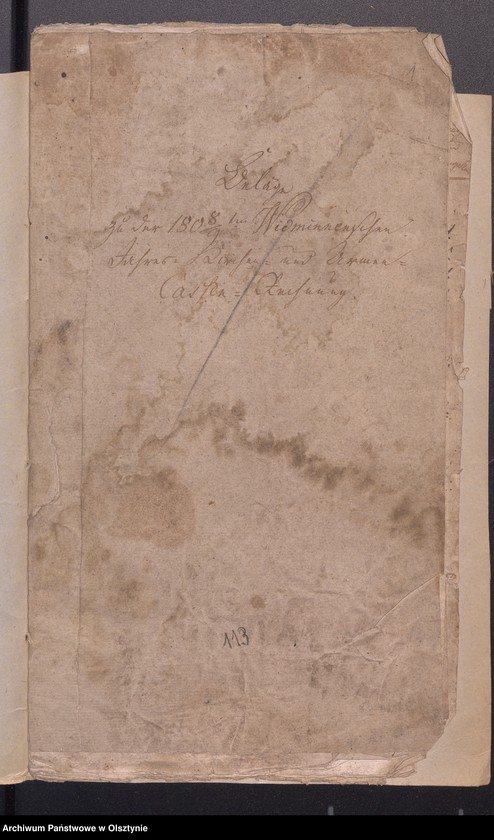 1
Beläge
zu der 1808ten Widminnenschen
Jahres- Kirchen- und Armen-
Cassen-Rechnung.
113
Archiwum Państwowe w Olsztynie